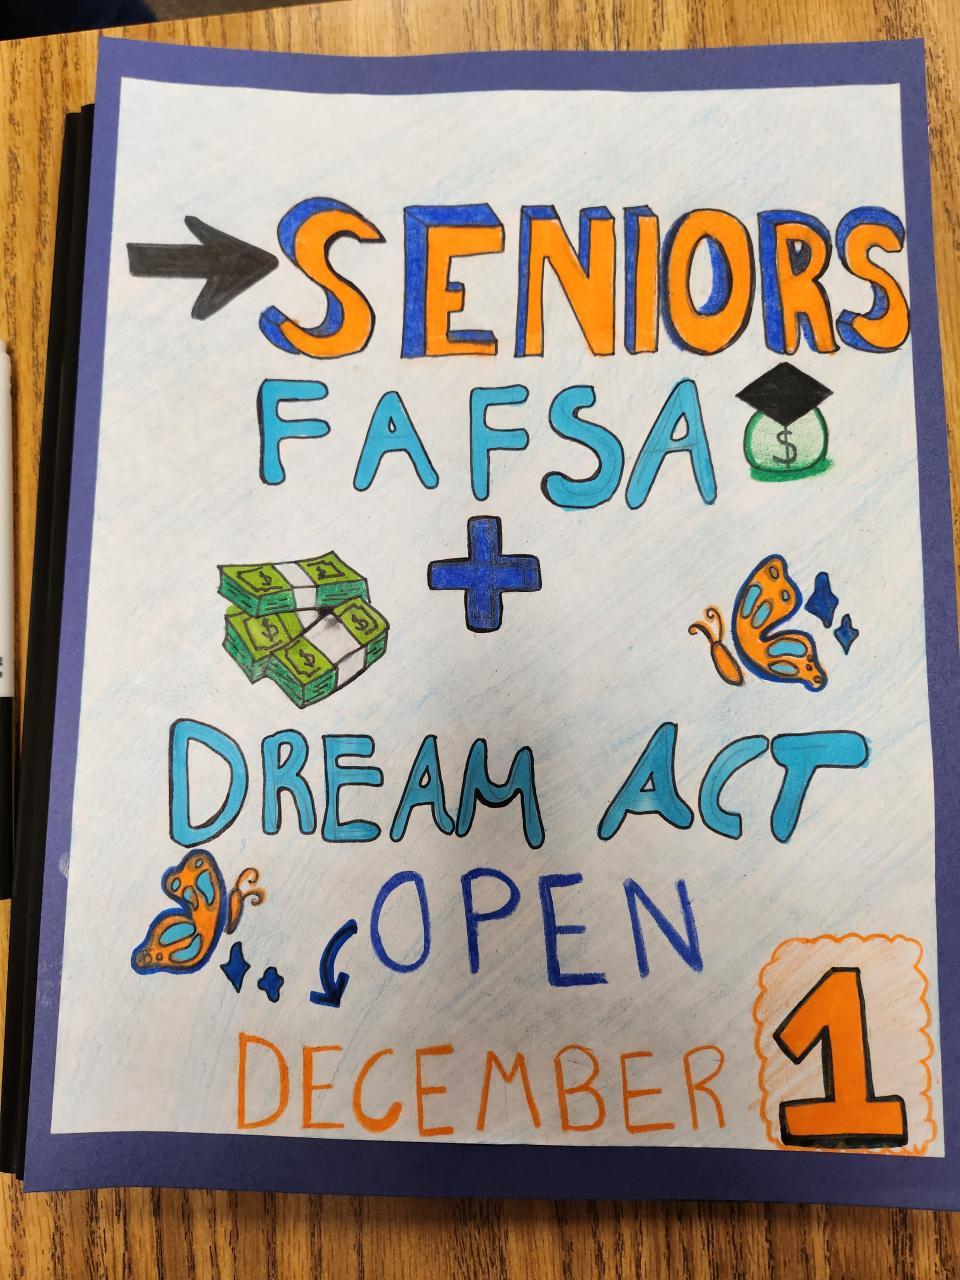 SENIORS
FAFSA
$
+
$ $
$
$
DREAM ACT
OPEN
DECEMBER 1